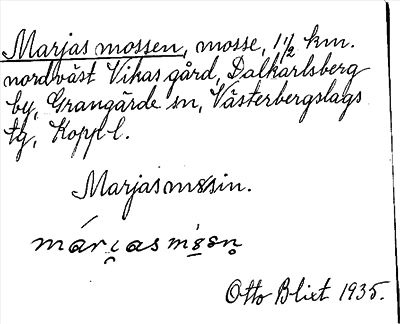 Marjas mossen, mosse, 1 1/2 km.
nordväst Vikas gård, Dalkarlsberg
by, Grangärde sn, Västerbergslags
tg, Koppl.
Marjasmssin.
Otto Blixt 1935.